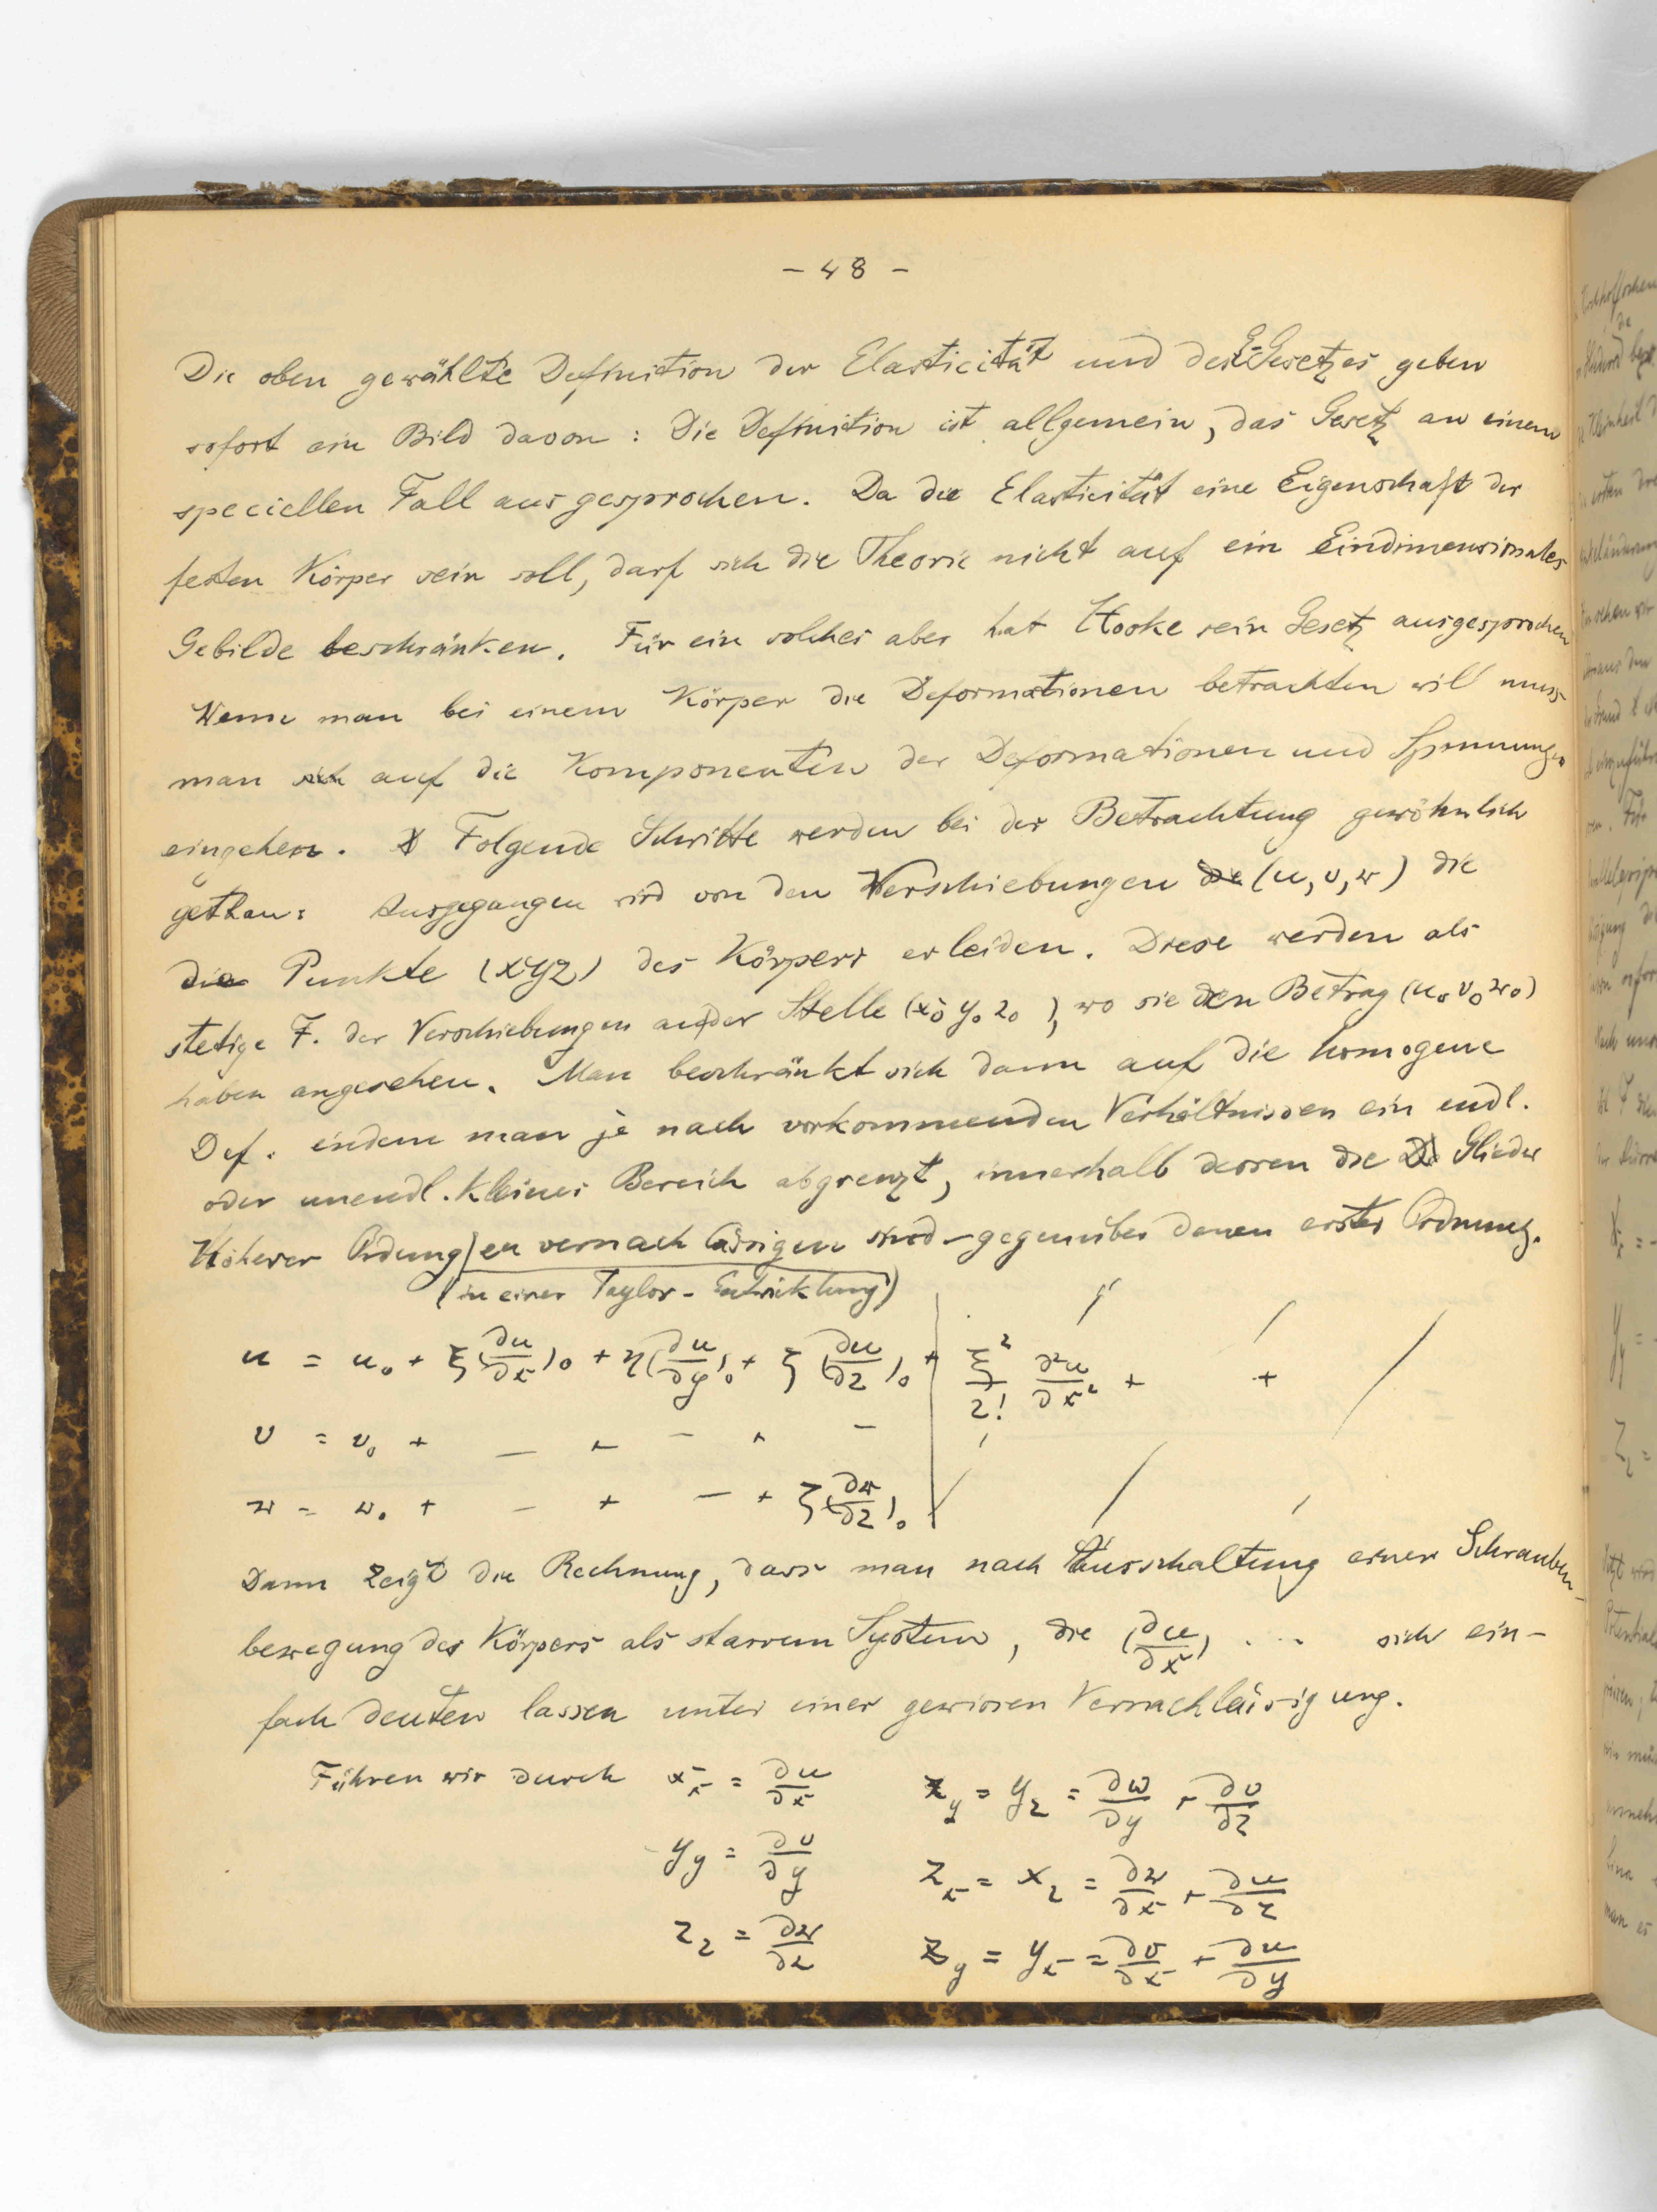 - 48 -
Die oben gewählte Definition der Elasticität und des E-Gesetzes geben
sofort ein Bild davon: Die Definition ist allgemein, das Gesetz an einem
speciellen Fall ausgesprochen. Da die Elasticität eine Eigenschaft der
festen Körper sein soll, darf sich die Theorie nicht auf ein Eindimensionales
Gebilde beschränken. Für ein solches aber hat Hooke sein Gesetz ausgesprochen
Wenn man bei einem Körper die Deformationen betrachten will muss
man sich auf die Komponenten der Deformationen und Spannungen
eingehen. Folgende Schritte werden bei der Betrachtung gewöhnlich
gethan: Ausgegangen wird von den Verschiebungen die (u, v, w) die
die Punkte (xyz) des Körpers erleiden. Diese werden als
stetige F. der Verschiebungen an der Stelle (x₀ y₀ z₀), wo sie den Betrag (u₀ v₀ w₀)
haben angesehen. Man beschränkt sich dann auf die homogene
Def. indem man je nach vorkommenden Verhältnissen ein endl.
oder unendl. kleines Bereich abgrenzt, innerhalb dessen die Glieder
Höherer Ordnung en vernachlässigen sind - gegenüber denen erster Ordnung.
(in einer Taylor-Entwicklung)
u = u₀ + ξ(∂u/∂x)₀ + η(∂u/∂y)₀ + ζ(∂u/∂z)₀ + | ξ²/2! ∂²u/∂x² + +
v = v₀ + — + — + —
w = w₀ + — + — + ζ(∂w/∂z)₀
Dann zeigt die Rechnung, dass man nach Ausschaltung einer Schrauben-
bewegung des Körpers als starrem System, die (∂u/∂x) ... sich ein-
fach deuten lassen unter einer gewissen Vernachlässigung.
Führen wir durch x_x = ∂u/∂x z_y = y_z = ∂w/∂y + ∂v/∂z
y_y = ∂v/∂y z_x = x_z = ∂w/∂x + ∂u/∂z
z_z = ∂w/∂z z_y = y_x = ∂v/∂x + ∂u/∂y